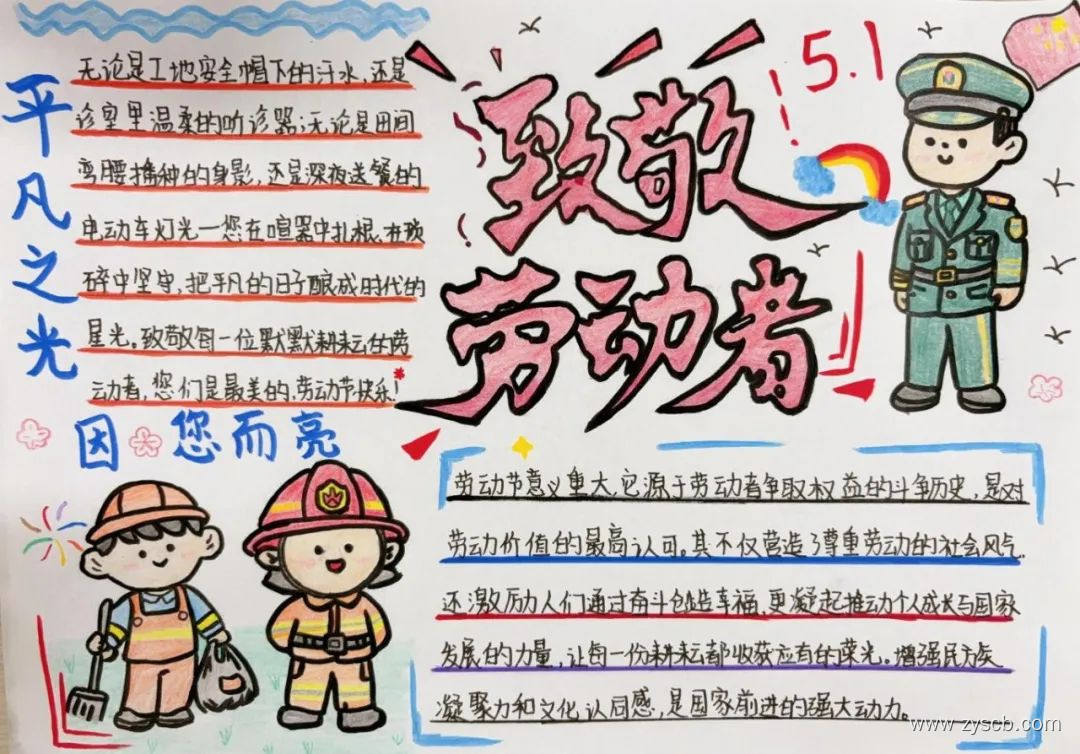 致敬
劳动者
5.1
平凡之光
因您而亮
无论是工地安全帽下的汗水,还是
诊室里温柔的听诊器;无论是田间
弯腰播种的身影,还是深夜送餐的
电动车灯光一您在喧嚣中扎根,在琐
碎中坚守,把平凡的日子酿成时代的
星光。致敬每一位默默耕耘的劳
动者,您们是最美的,劳动节快乐!
劳动节意义重大,它源于劳动者争取权益的斗争历史,是对
劳动价值的最高认可。其不仅营造了尊重劳动的社会风气,
还激励人们通过奋斗创造幸福,更凝起推动个人成长与国家
发展的力量,让每一份耕耘都收获应有的荣光。增强民族
凝聚力和文化认同感,是国家前进的强大动力。
www.zyscb.com